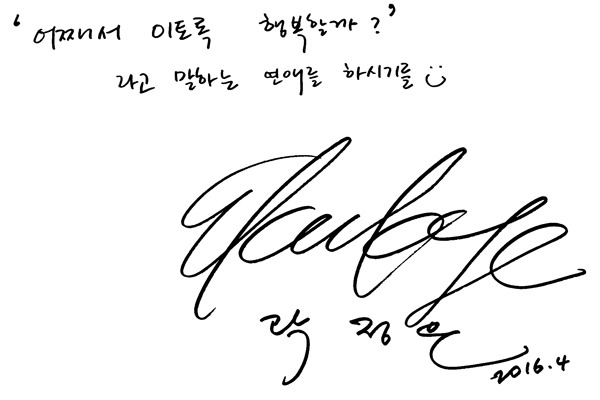 ‘어째서 이토록 행복할까?’
라고 말하는 연애를 하시기를
곽정은
2016.4